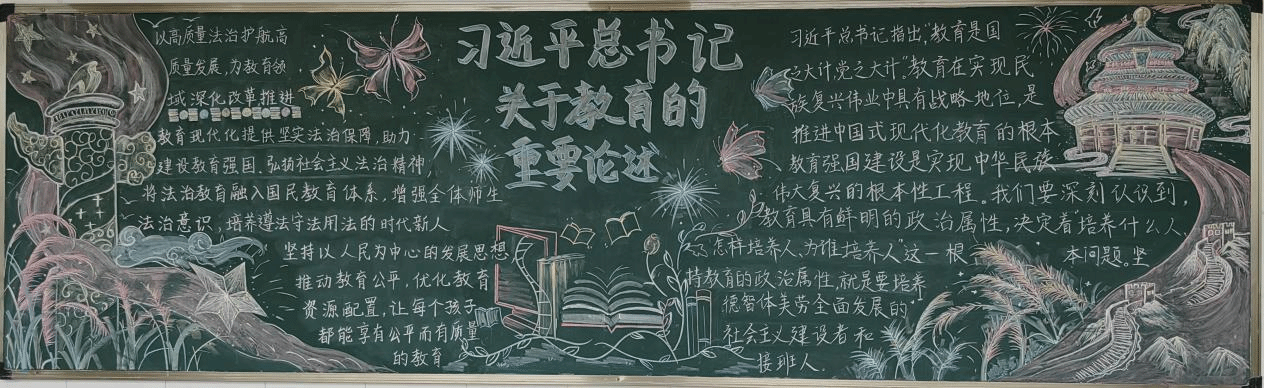 习近平总书记
关于教育的
重要论述
以高质量法治护航高
质量发展,为教育领
域深化改革推进
教育现代化提供坚实法治保障,助力
建设教育强国。弘扬社会主义法治精神,
将法治教育融入国民教育体系,增强全体师生
法治意识,培养遵法守法用法的时代新人
坚持以人民为中心的发展思想,
推动教育公平,优化教育
资源配置,让每个孩子
都能享有公平而有质量
的教育
习近平总书记指出,"教育是国
之大计,党之大计。"教育在实现民
族复兴伟业中具有战略地位,是
推进中国式现代化教育的根本
教育强国建设是实现中华民族
伟大复兴的根本性工程。我们要深刻认识到,
教育具有鲜明的政治属性,决定着"培养什么人、
怎样培养人、为谁培养人"这一根
本问题。坚
持教育的政治属性,就是要培养
德智体美劳全面发展的
社会主义建设者和
接班人.